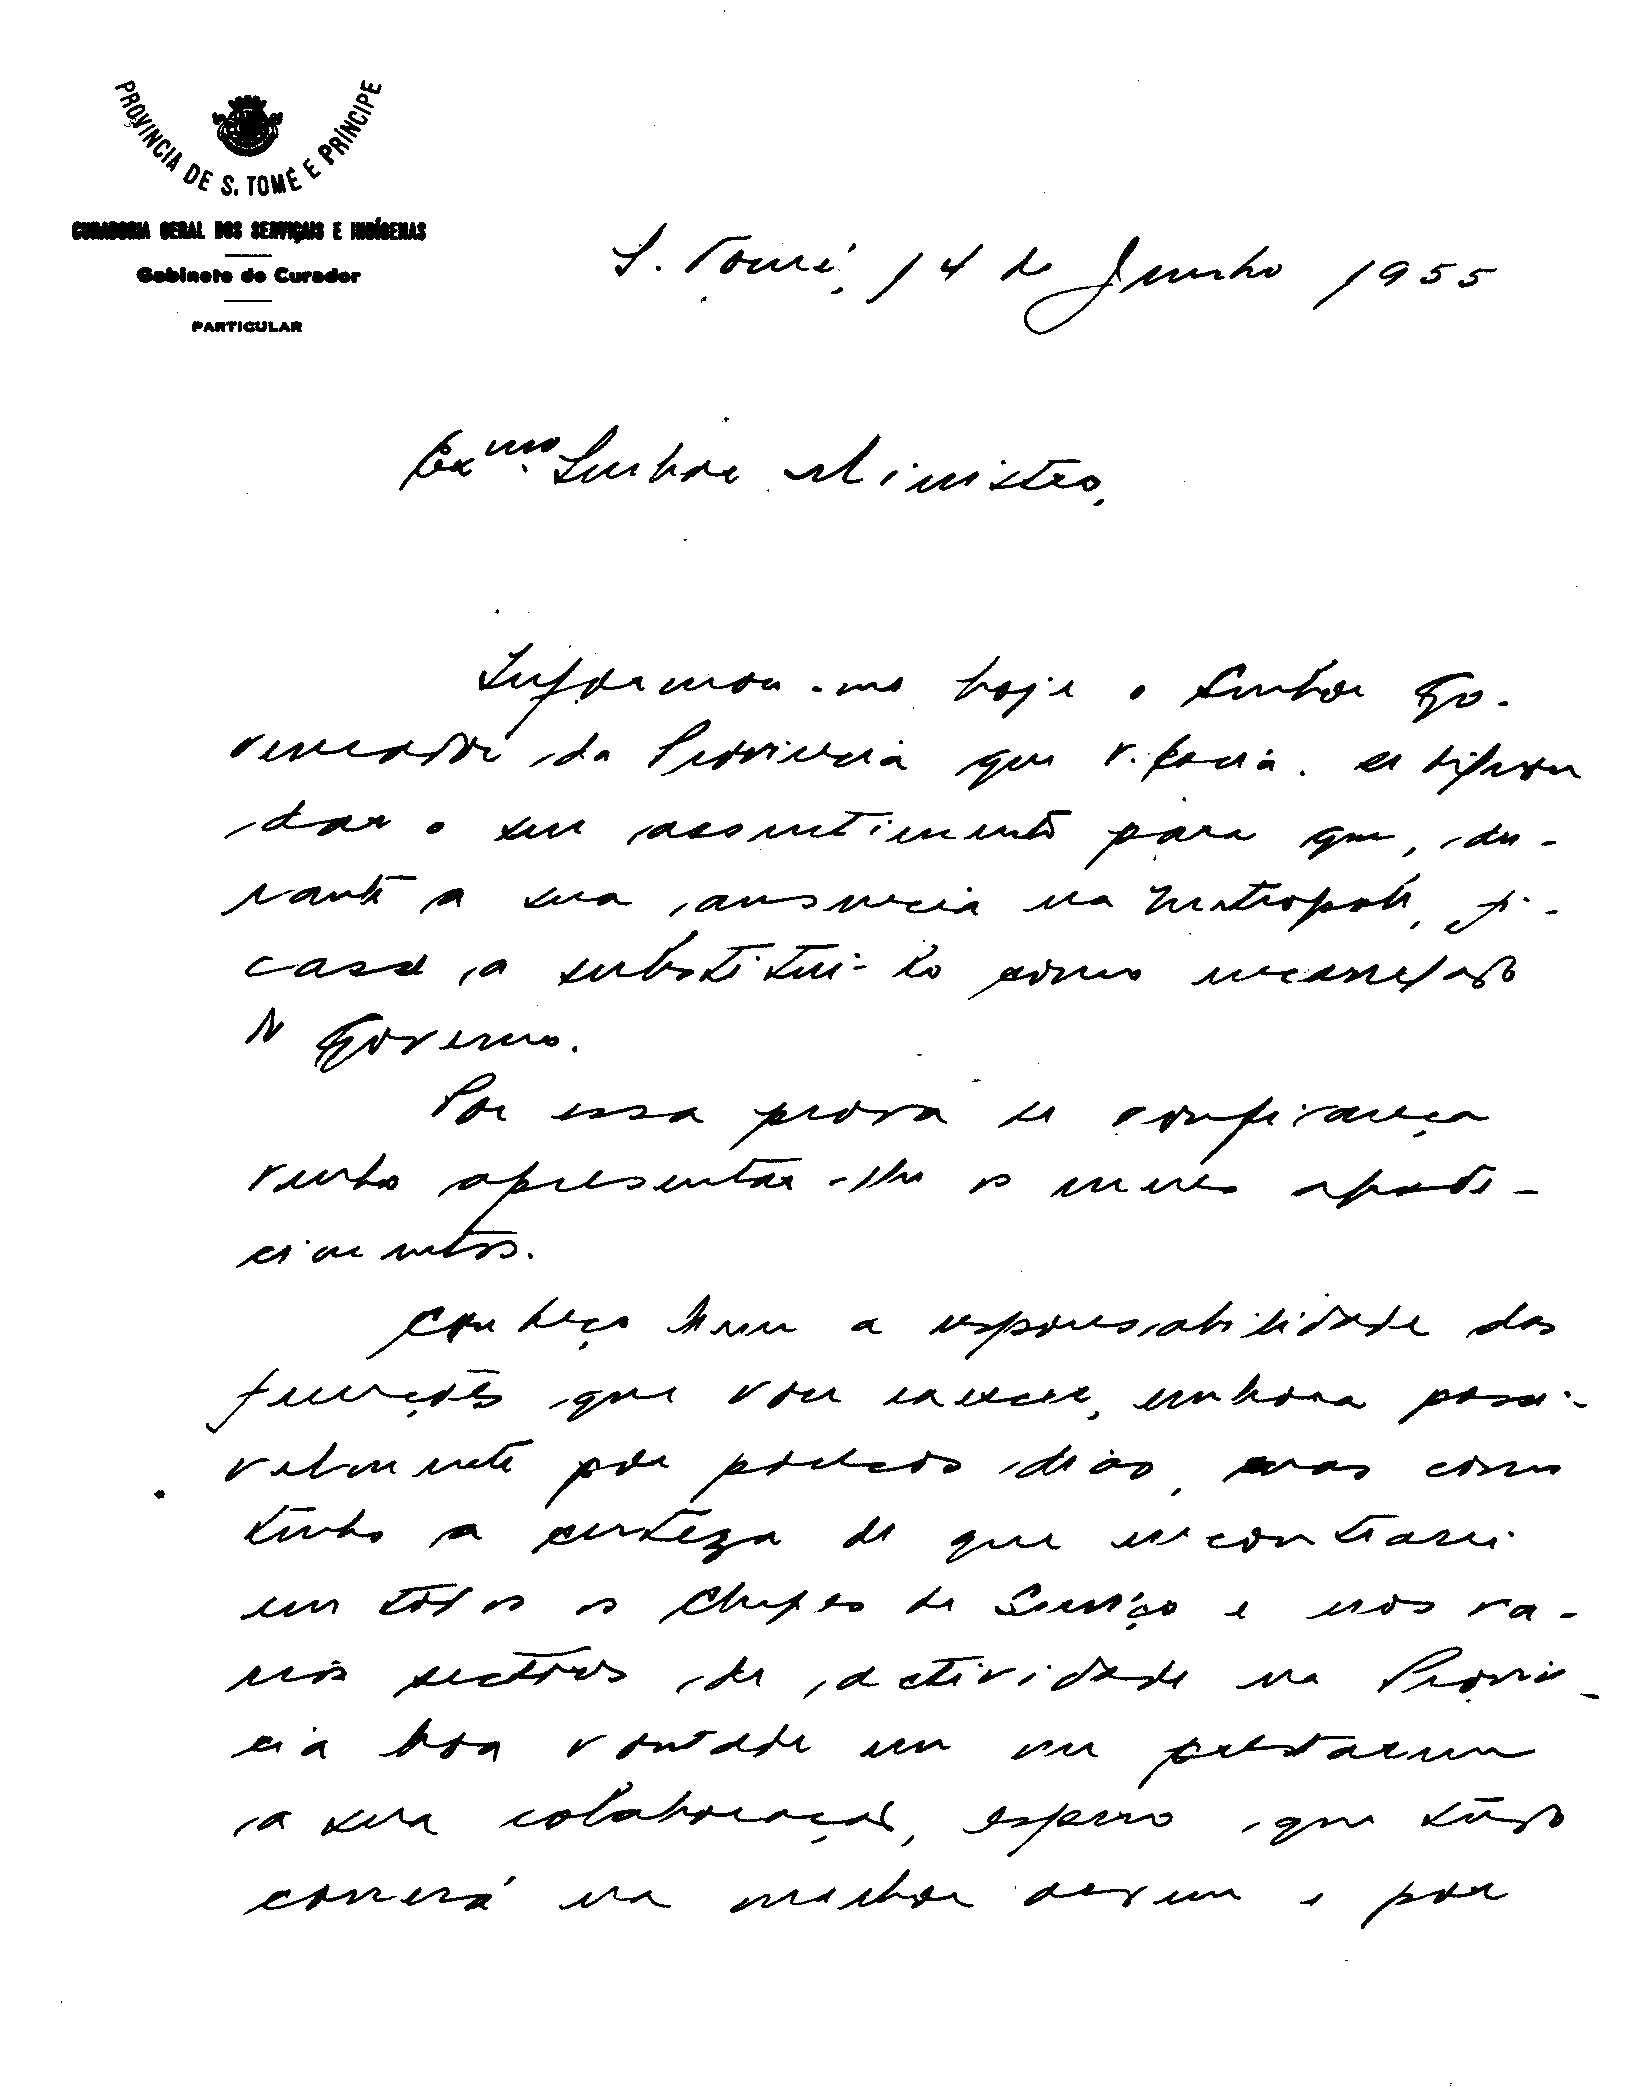 PROVINCIA DE S. TOMÉ E PRÍNCIPE
CURADORIA GERAL DOS SERVIÇAIS E INDÍGENAS
Gabinete do Curador
PARTICULAR
S. Tomé, 14 de Junho 1955
Exmo. Senhor Ministro,
Informou-me hoje o Senhor Go-
vernador da Provincia que V. Excia. se dignou
dar o seu assentimento para que, du-
rante a sua ausencia na Metropole, fi-
casse a substitui-lo como encarregado
do Governo.
Por essa prova de confiança
venho apresentar-lhe os meus agrade-
cimentos.
Conheço bem a responsabilidade das
funções que vou exercer, embora possi-
velmente por poucos dias, mas como
tenho a certeza de que encontrarei
em todos os Chefes de Serviço e nos va-
rios sectores de actividade na Provin-
cia boa vontade em me prestarem
a sua colaboração, espero que tudo
correrá na melhor ordem e por